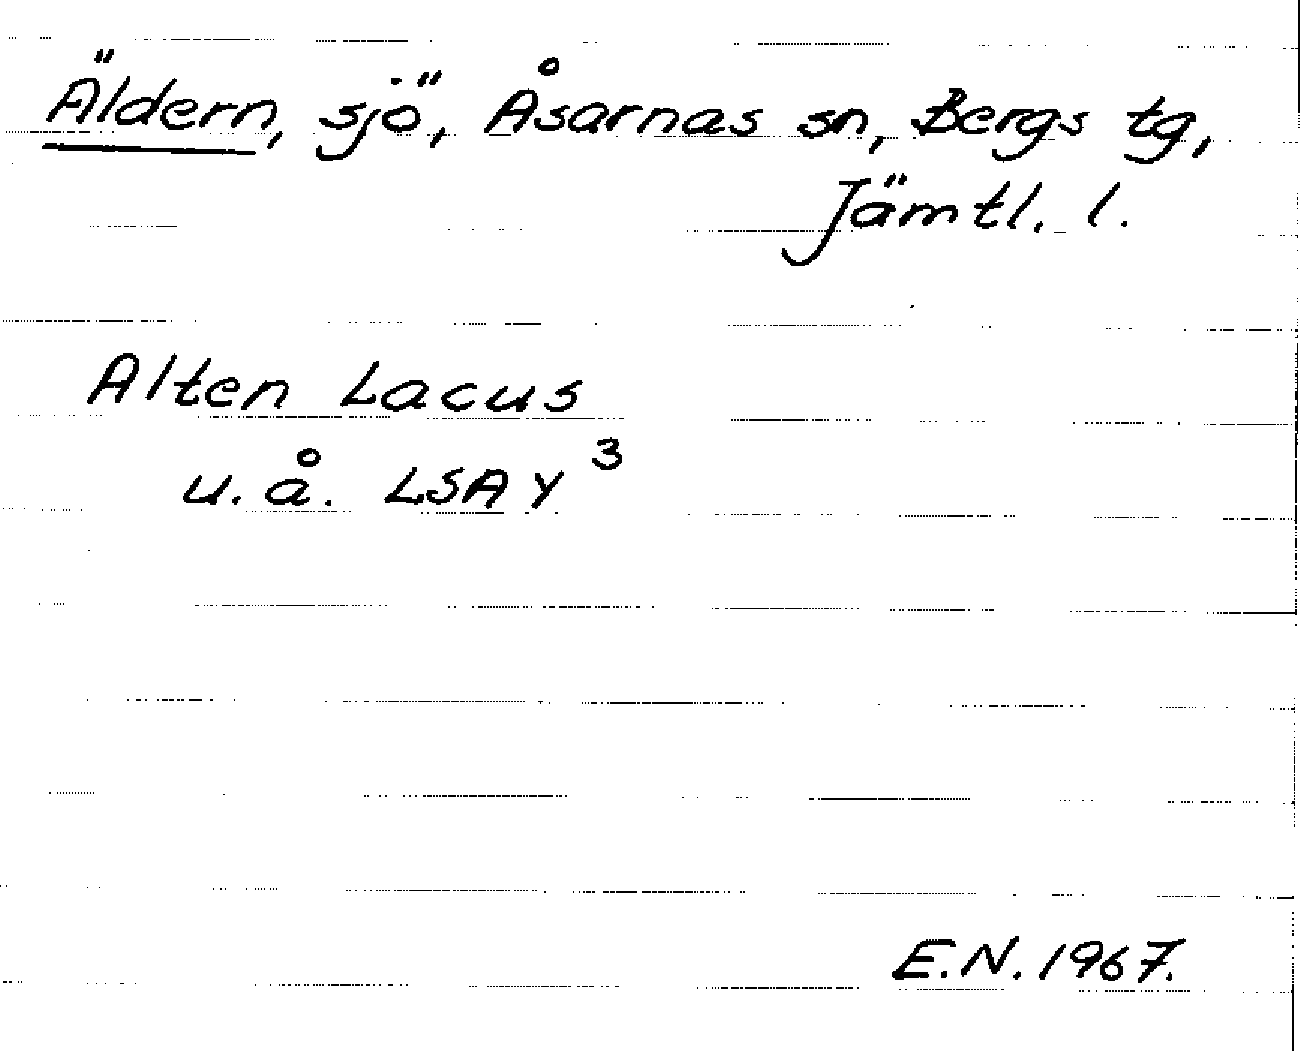 Äldern, sjö, Åsarnas sn, Bergs tg,
Jämtl. l.
Alten Lacus
u.å. LSA Y 3
E.N. 1967.